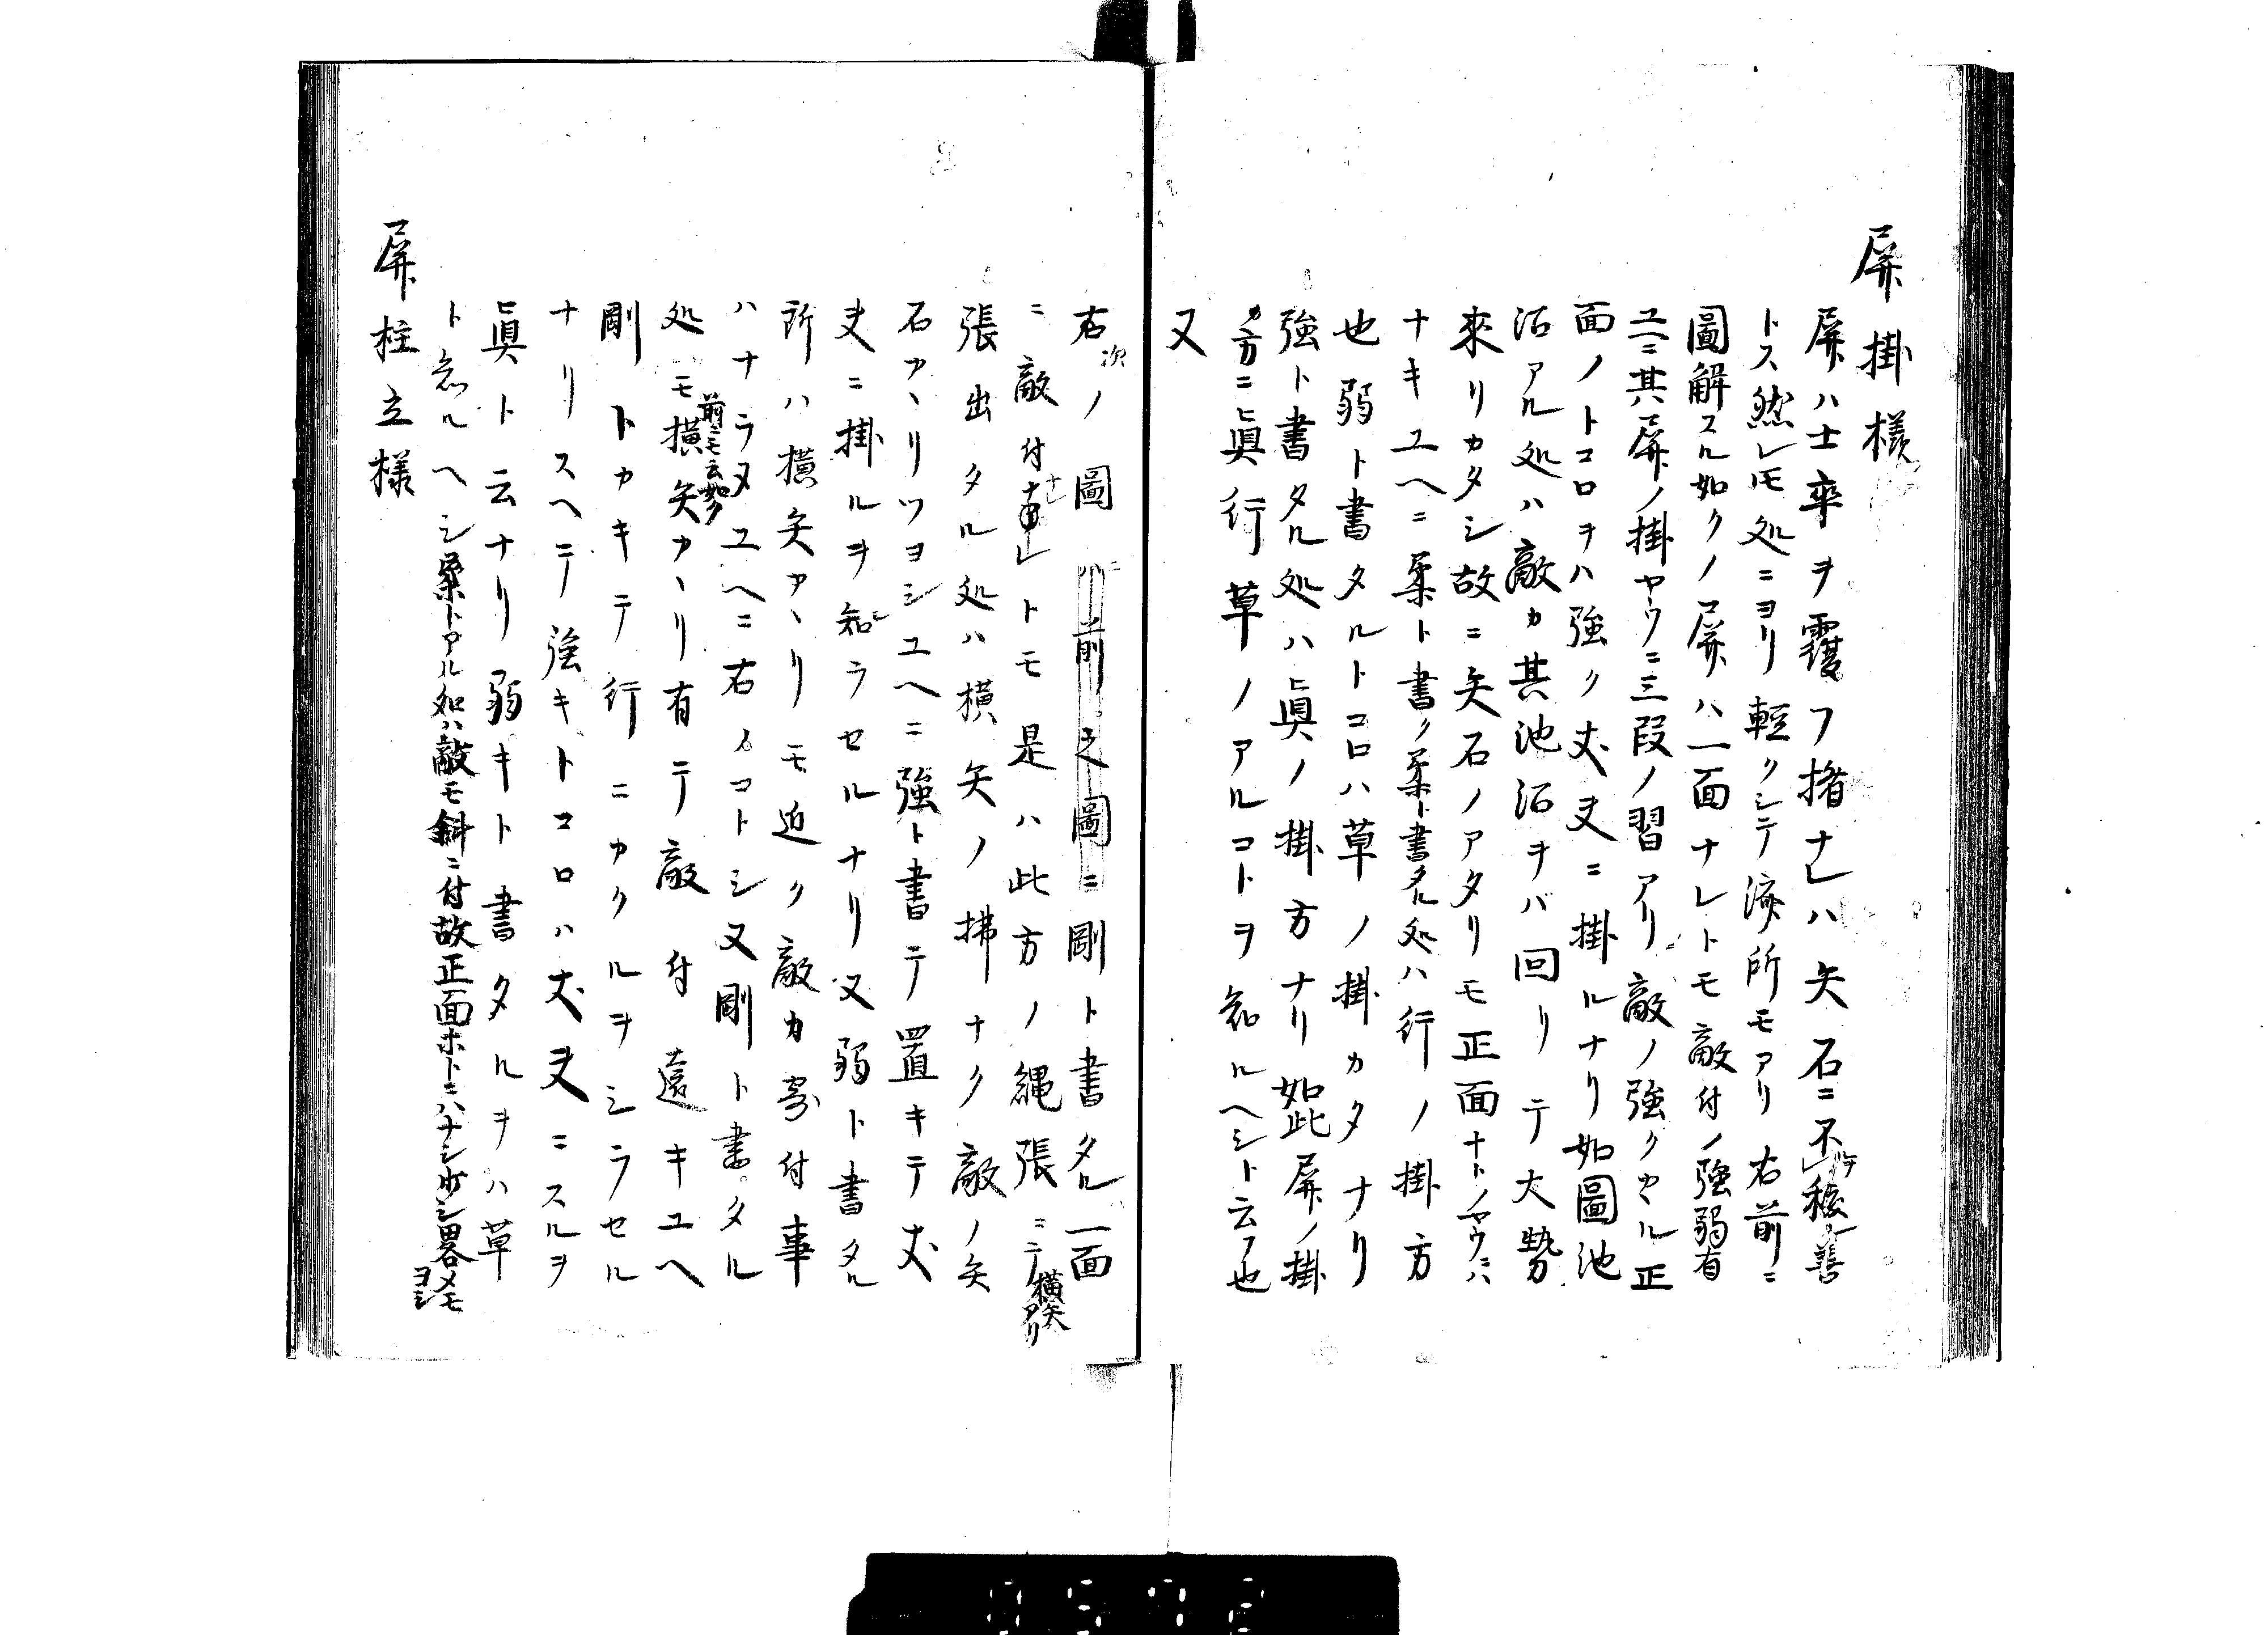 屏掛様
屏ハ士卒ヲ覆フ揩ナレハ矢石ニ不ルヲ穩善
トス然レ𪜈処ニヨリ軽クシテ済所モアリ右前ニ
圖解スル如クノ屏ハ一面ナレトモ敵付ノ強弱有
ユヘニ其屏ノ掛ヤウニ三段ノ習アリ敵ノ強クカヽル正
面ノトコロヲハ強ク丈夫ニ掛ルナリ如圖池
沼アル処ハ敵カ其池沼ヲバ回リテ大勢
来リカタシ故ニ矢石ノアタリモ正面ナトノヤウニハ
ナキユヘニ柔ト書ク柔ト書タル処ハ行ノ掛方
也弱ト書タルトコロハ草ノ掛カタナリ
強ト書タル処ハ眞ノ掛方ナリ如此屏ノ掛
ケ方ニ眞行草ノアルコトヲ知ルヘシト云フ也
又
右次ノ圖前之圖ニ剛ト書タル一面
ニ敵付ナキ事トモ是ハ此方ノ縄張ニテ横矢アリ
張出タル処ハ横矢ノ拂ナク敵ノ矢
石カヽリツヨシユヘニ強ト書テ置キテ丈
夫ニ掛ルヲ知ラセルナリ又弱ト書タル
所ハ横矢カヽリモ迫ク敵カ寄付事
ハナラヌユヘニ右ノコトシ又剛ト書タル
前ニモ云如ク
処モ横矢カヽリ有テ敵付遠キユヘ
剛トカキテ行ニカクルヲシラセル
ナリスヘテ強キトコロハ丈夫ニスルヲ
眞ト云ナリ弱キト書タルヲハ草
ト知ルヘシ柔トアル処ハ敵モ斜ニ付故正面ホトニハナシ少シ畧メモヨシ
屏柱立様